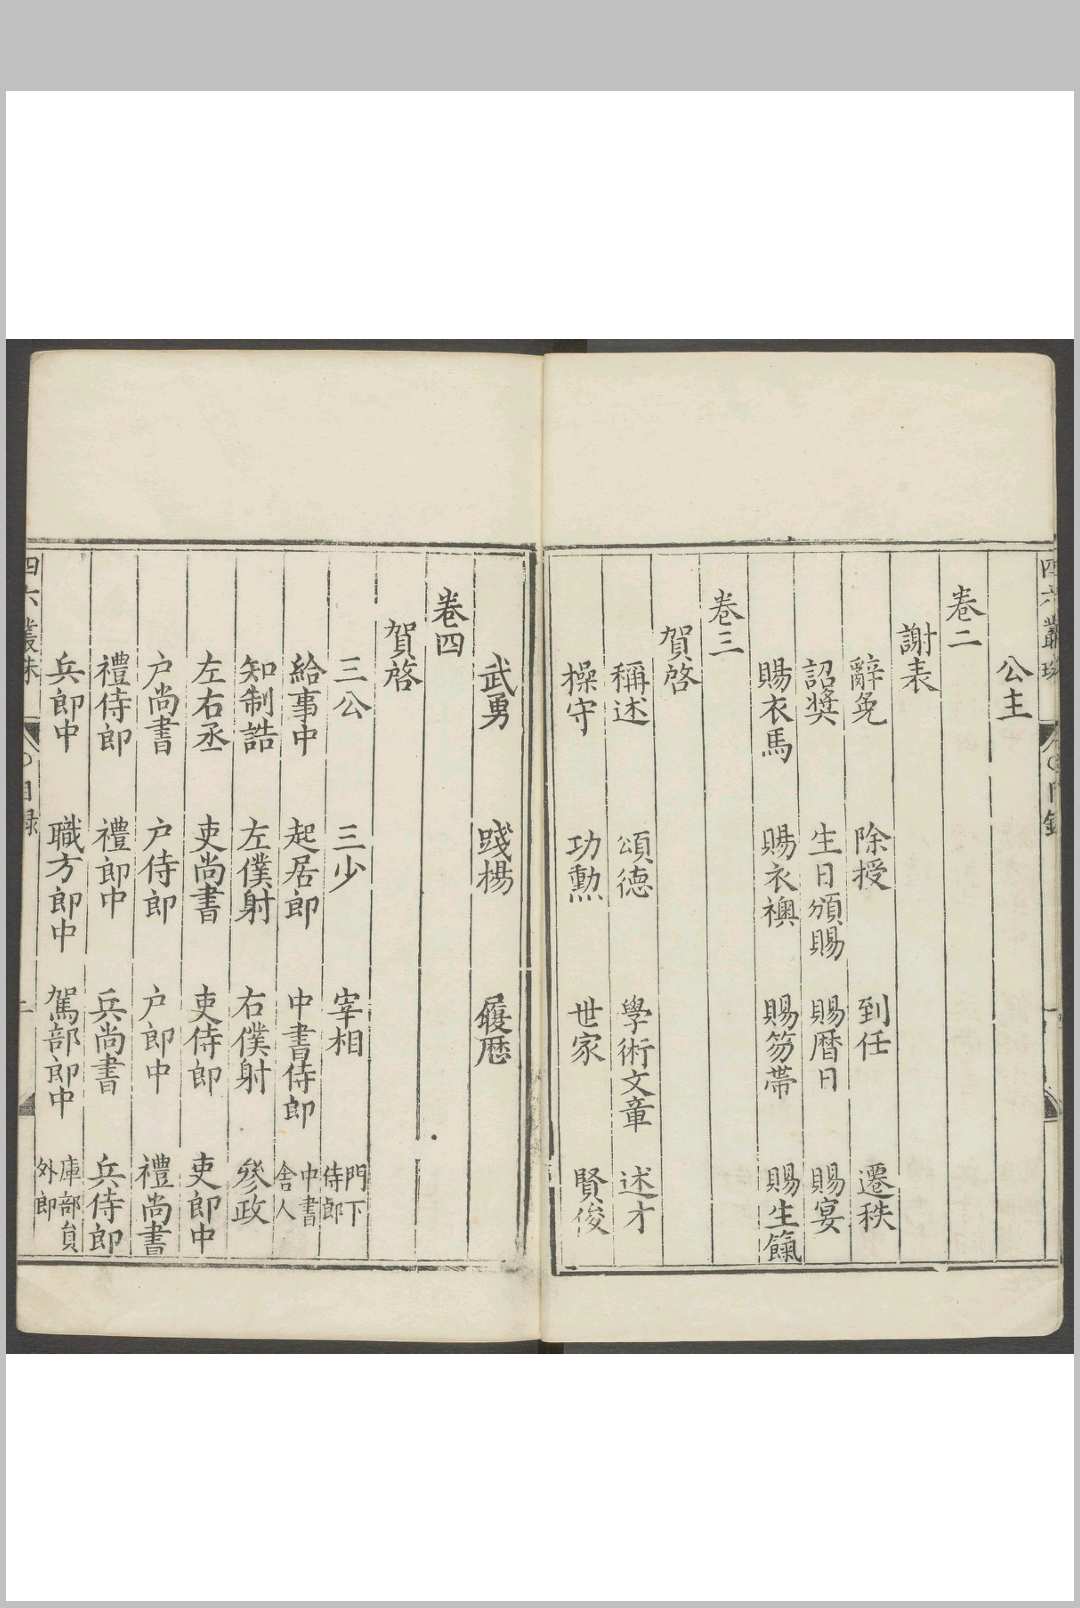 公主
卷二
謝表
辭免 除授 到任 遷秩
詔獎 生日頒賜 賜曆日 賜宴
賜衣馬 賜衣襖 賜笏帶 賜生餼
卷三
賀啓
稱述 頌德 學術文章 述才
操守 功勳 世家 賢俊
武勇 踐揚 履歷
卷四
賀啓
三公 三少 宰相 門下侍郎
給事中 起居郎 中書侍郎 中書舍人
知制誥 左僕射 右僕射 參政
左右丞 吏尚書 吏侍郎 吏郎中
户尚書 户侍郎 户郎中 禮尚書
禮侍郎 禮郎中 兵尚書 兵侍郎
兵郎中 職方郎中 駕部郎中 庫部員外郎
四六叢珠 目録